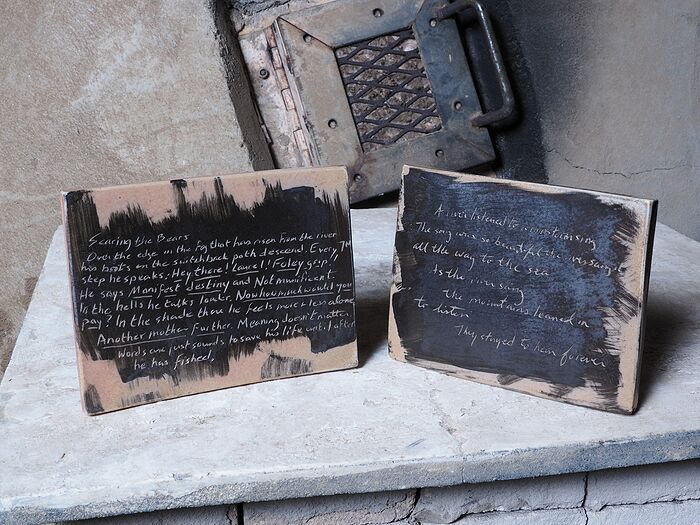 Scaring the Bears
Over the edge in the fog that has risen from the river
his boots on the switchback path descend. Every 7th
step he speaks. Hey there! Laurel! Foley grip!
He says Manifest destiny and Not munificent
In the hells he talks louder. Now how much would you
pay? In the shade thou he feels more + less alone
Another mother Further. Meaning doesn't matter
Words are just sounds to save his life until after
he has fished.
A river listened to a mountain sing
The song was so beautiful the river sang it
all the way to the sea
As the river sang
the mountains leaned in
to listen
They stayed to hear forever